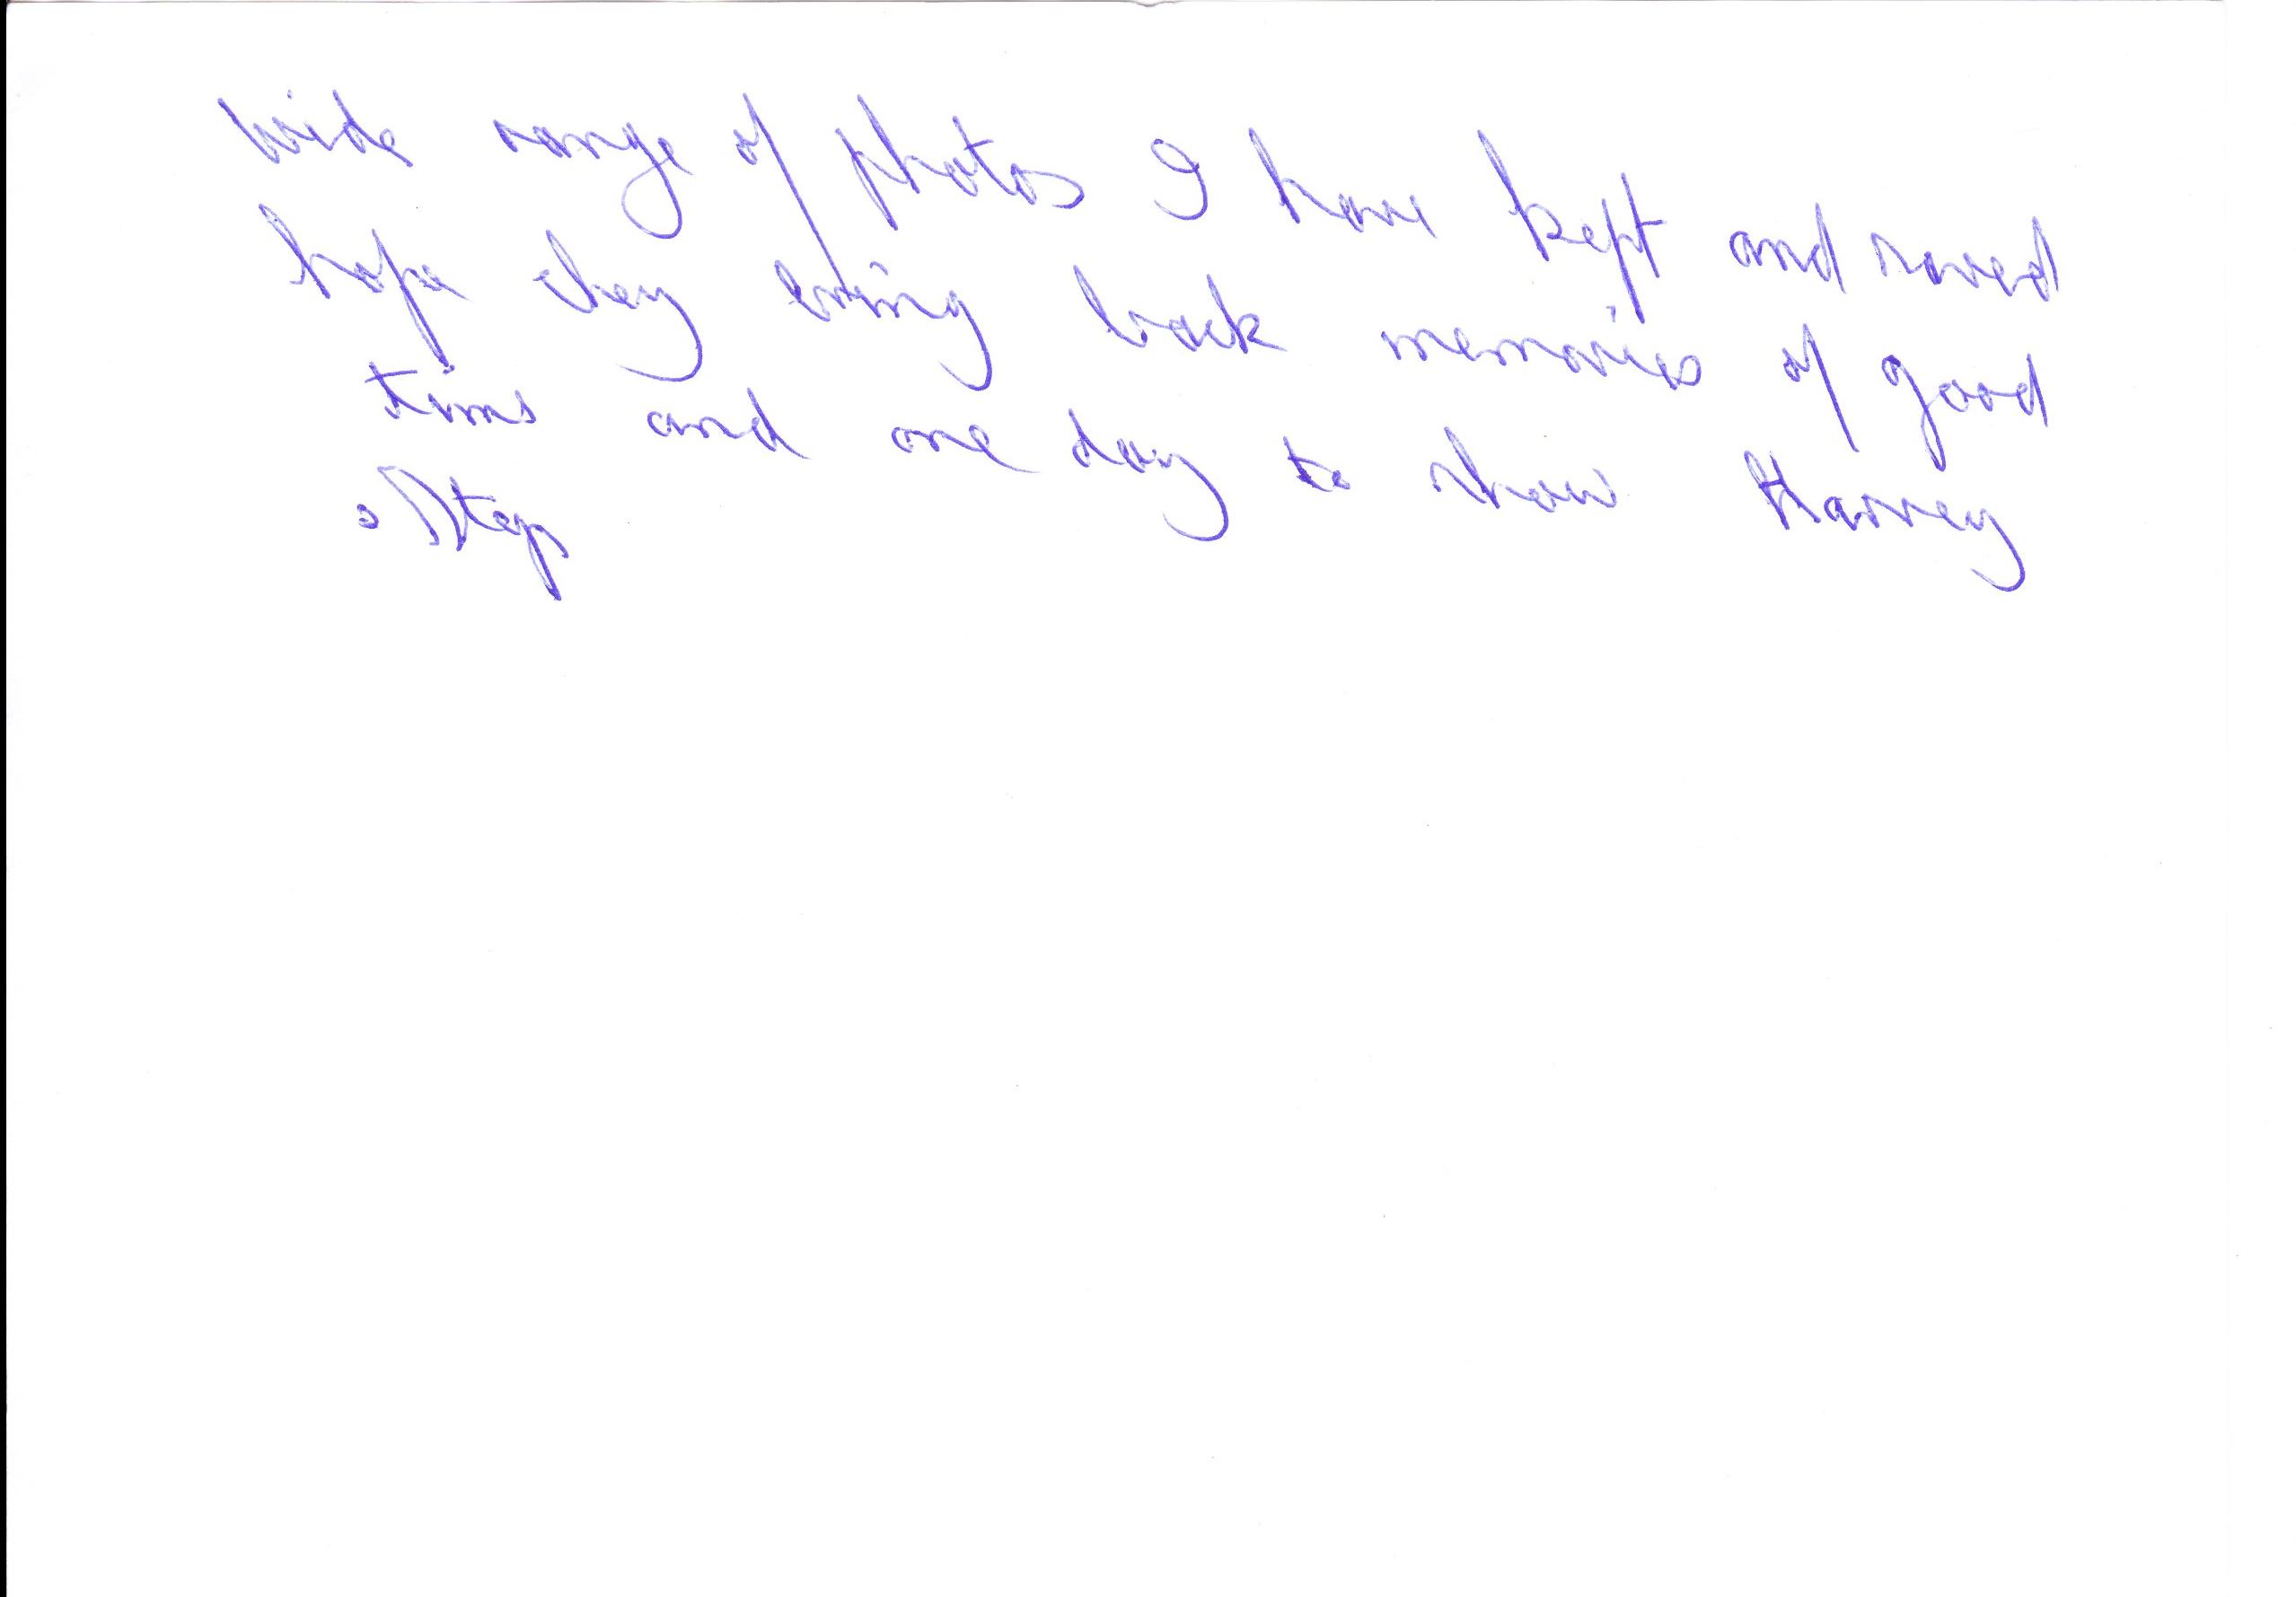 wide range of photos I have kept and saved
hope they bring back memories of good
times and one day to show Harvey
Step